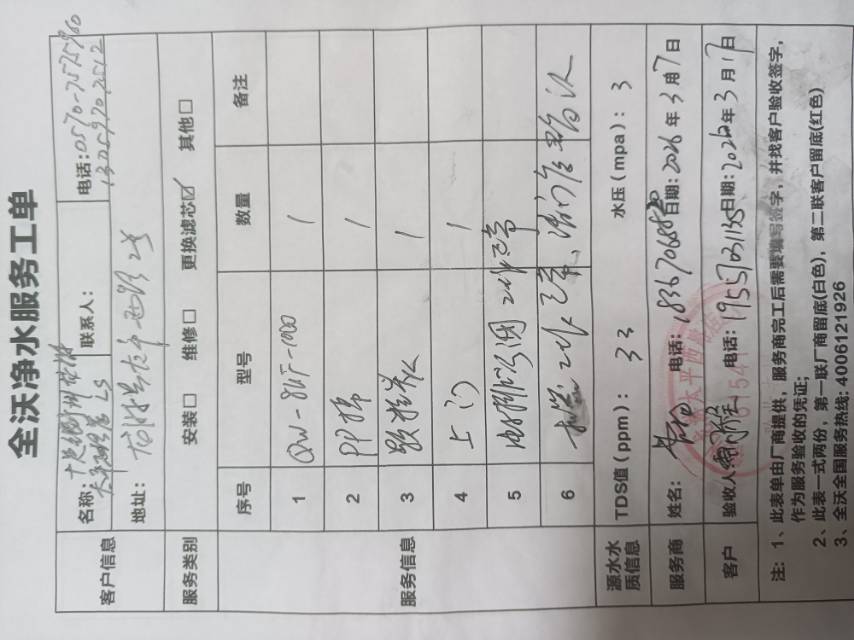 全沃净水服务工单
客户信息
名称：
联系人：
电话：0570-7525980
13059702512
地址：龙游县太平西路2号
服务类别
安装□ 维修□ 更换滤芯☑ 其他□
服务信息
序号 型号 数量 备注
1 QW-8UF-1000 1
2 PP棉 1
3 1
4 上门 1
5 工作正常
6 工作正常
源水水质信息
TDS值（ppm）：33 水压（mpa）：3
服务商 姓名： 电话：18367068520 日期：2026年3月7日
客户 验收人： 电话：19557031158 日期：2026年3月17日
注：1、此表单由厂商提供，服务商完工后需要填写签字，并找客户验收签字，
作为服务验收的凭证；
2、此表一式两份，第一联厂商留底(白色)，第二联客户留底(红色)
3、全沃全国服务热线：4006121926